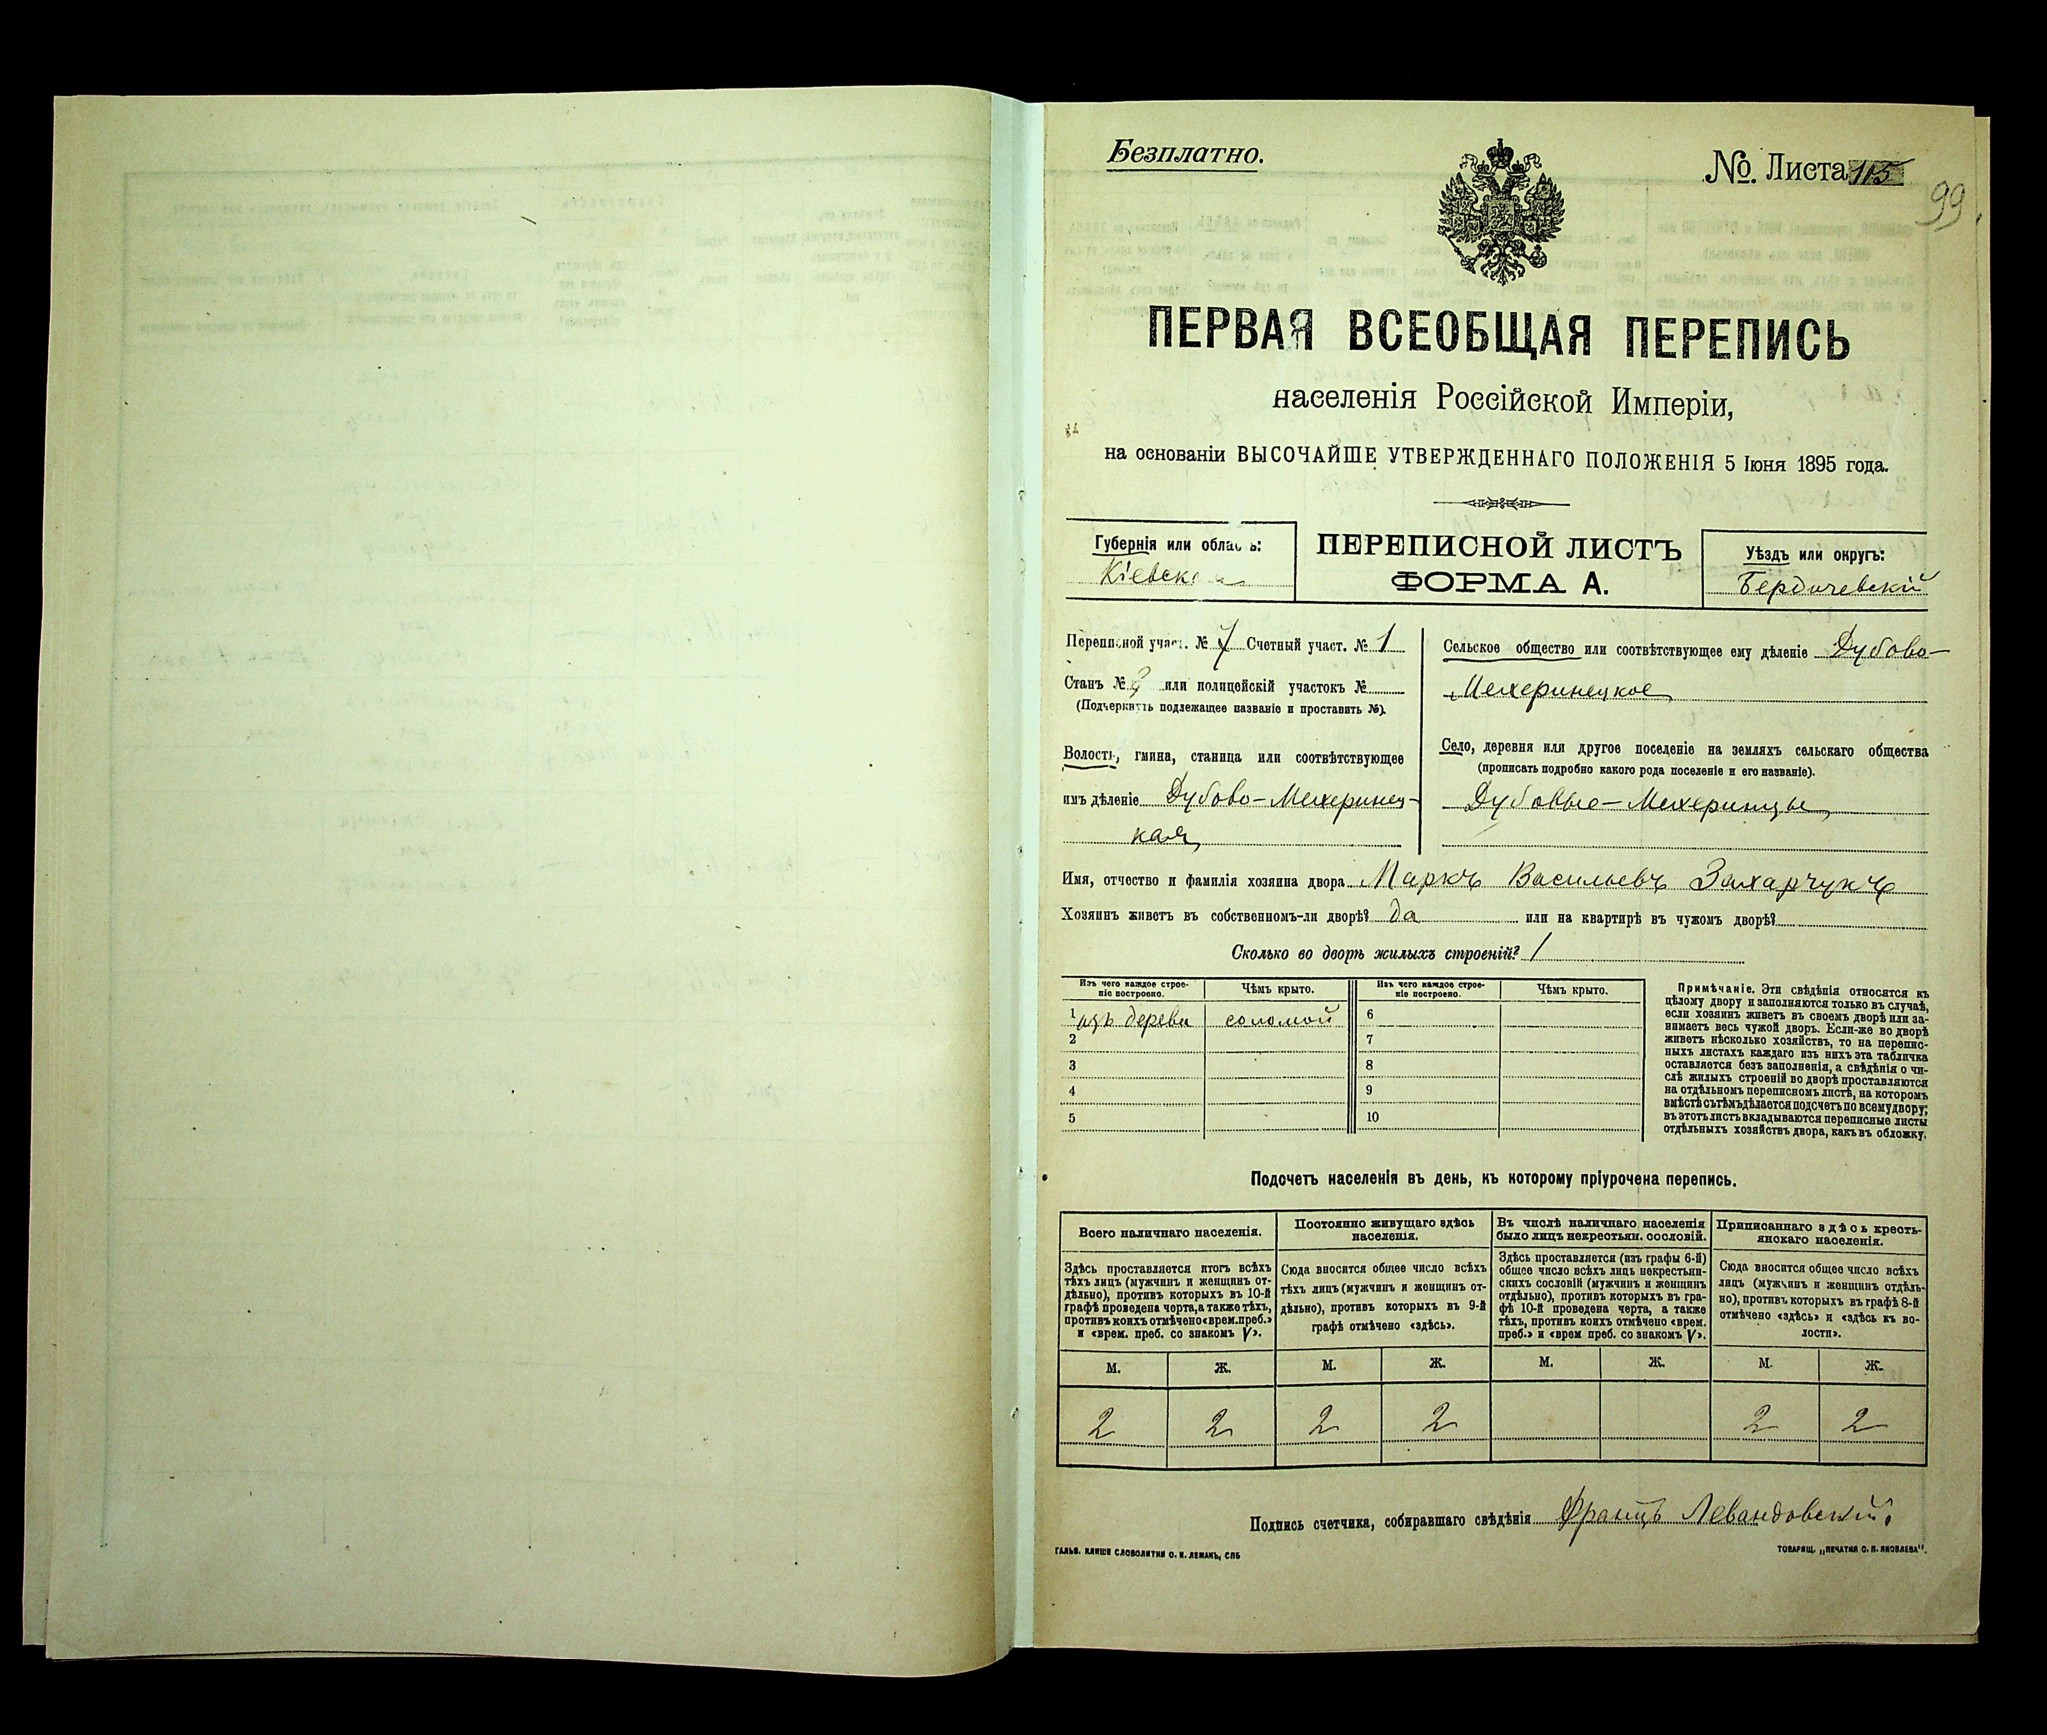 Безплатно.
№. Листа 115
99
ПЕРВАЯ ВСЕОБЩАЯ ПЕРЕПИСЬ
населенія Россійской Имперіи,
на основаніи ВЫСОЧАЙШЕ УТВЕРЖДЕННАГО ПОЛОЖЕНІЯ 5 Іюня 1895 года.
Губернія или область:
Кіевская
ПЕРЕПИСНОЙ ЛИСТЪ
ФОРМА А.
Уѣздъ или округъ:
Бердичевскій
Переписной участ. № 7 Счетный участ. № 1
Станъ № или полицейскій участокъ №
(Подчеркнуть подлежащее названіе и проставить №).
Волость, гмина, станица или соотвѣтствующее
имъ дѣленіе Дубово-Мехеринец-
кая
Сельское общество или соотвѣтствующее ему дѣленіе Дубово-
Мехеринецкое
Село, деревня или другое поселеніе на земляхъ сельскаго общества
(прописать подробно какого рода поселеніе и его названіе).
Дубовые-Мехеринцы
Имя, отчество и фамилія хозяина двора Маркъ Васильевъ Захарчукъ
Хозяинъ живетъ въ собственномъ-ли дворѣ? да или на квартирѣ въ чужомъ дворѣ?
Сколько во дворѣ жилыхъ строеній? 1
Изъ чего каждое строе-
ніе построено.
Чѣмъ крыто.
Изъ чего каждое строе-
ніе построено.
Чѣмъ крыто.
1 изъ дерева соломой 6
2 7
3 8
4 9
5 10
Примѣчаніе. Эти свѣдѣнія относятся къ
цѣлому двору и заполняются только въ случаѣ,
если хозяинъ живетъ въ своемъ дворѣ или за-
нимаетъ весь чужой дворъ. Если-же во дворѣ
живетъ нѣсколько хозяйствъ, то на перепис-
ныхъ листахъ каждаго изъ нихъ эта табличка
оставляется безъ заполненія, а свѣдѣнія о чи-
слѣ жилыхъ строеній во дворѣ проставляются
на отдѣльномъ переписномъ листѣ, на которомъ
вмѣстѣ съ тѣмъ дѣлается подсчетъ по всему двору;
въ этотъ листъ вкладываются переписные листы
отдѣльныхъ хозяйствъ двора, какъ въ обложку.
Подсчетъ населенія въ день, къ которому пріурочена перепись.
Всего наличнаго населенія.
Здѣсь проставляется итогъ всѣхъ
тѣхъ лицъ (мужчинъ и женщинъ от-
дѣльно), противъ которыхъ въ 10-й
графѣ проведена черта, а также тѣхъ,
противъ коихъ отмѣчено «врем. преб.»
и «врем. преб. со знакомъ V».
Постоянно живущаго здѣсь
населенія.
Сюда вносится общее число всѣхъ
тѣхъ лицъ (мужчинъ и женщинъ от-
дѣльно), противъ которыхъ въ 9-й
графѣ отмѣчено «здѣсь».
Въ числѣ наличнаго населенія
было лицъ некрестьян. сословій.
Здѣсь проставляется (изъ графы 6-й)
общее число всѣхъ лицъ некрестьян-
скихъ сословій (мужчинъ и женщинъ
отдѣльно), противъ которыхъ въ гра-
фѣ 10-й проведена черта, а также
тѣхъ, противъ коихъ отмѣчено «врем.
преб.» и «врем преб. со знакомъ V».
Приписаннаго здѣсь кресть-
янскаго населенія.
Сюда вносится общее число всѣхъ
лицъ (мужчинъ и женщинъ отдѣль-
но), противъ которыхъ въ графѣ 8-й
отмѣчено «здѣсь» и «здѣсь къ во-
лости».
М. Ж. М. Ж. М. Ж. М. Ж.
2 2 2 2 2 2
Подпись счетчика, собиравшаго свѣдѣнія Францъ Левандовскій
ГАЛЬВ. КЛИШЕ СЛОВОЛИТНИ О. И. ЛЕМАНЪ, СПБ
ТОВАРИЩ. „ПЕЧАТНЯ С. П. ЯКОВЛЕВА".